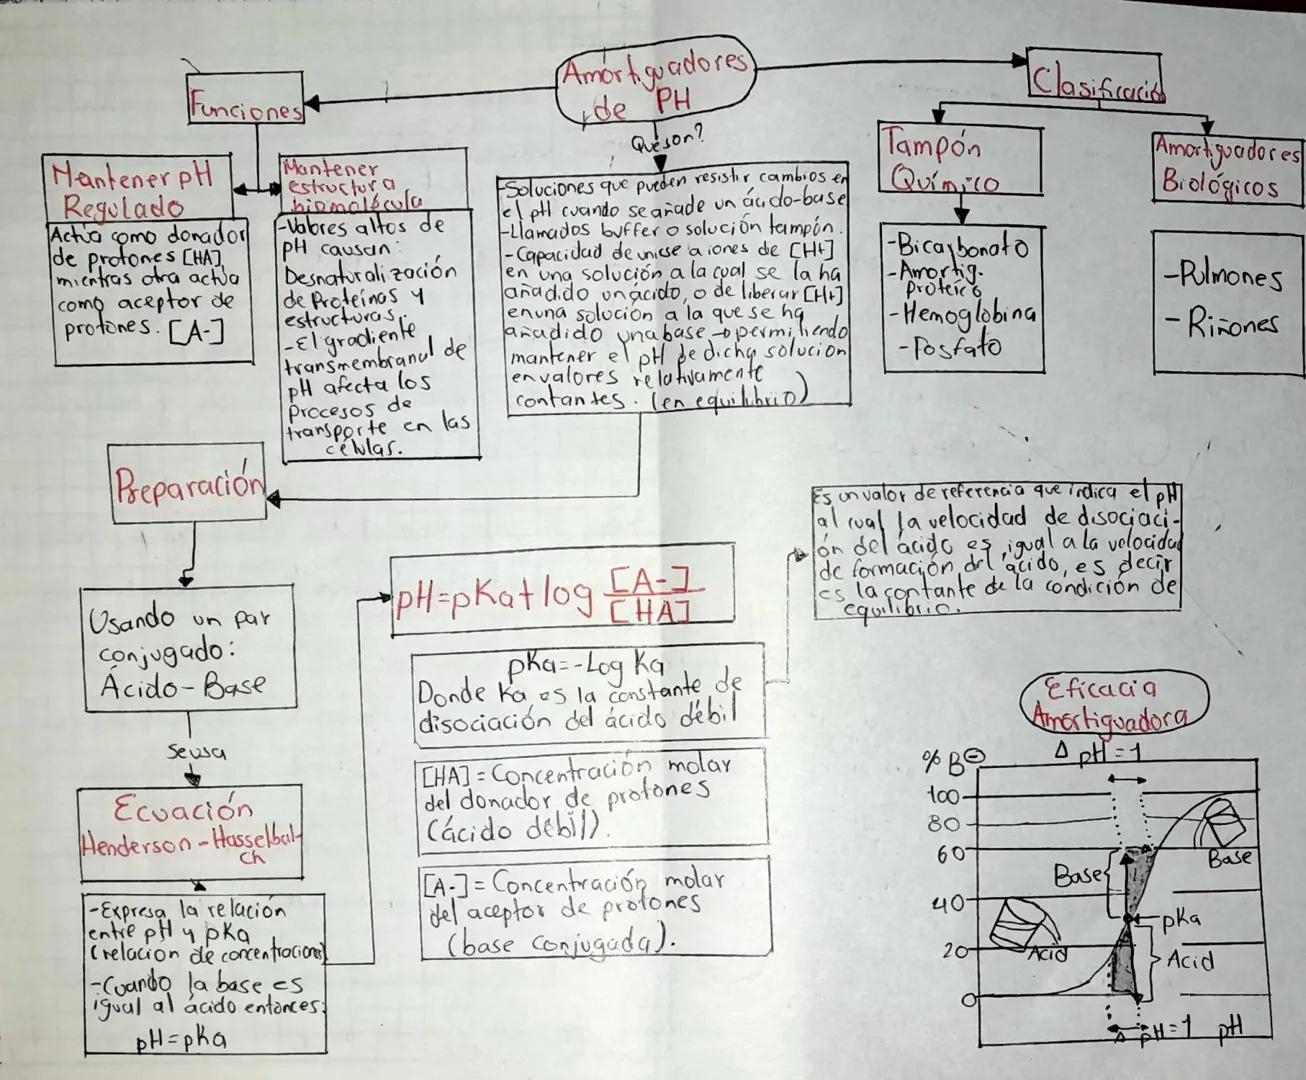 Amortiguadores
de PH
Funciones
Clasificación
Qué son?
Mantener pH
Regulado
Actúa como donador
de protones [HA]
mientras otra actúa
como aceptor de
protones. [A-]
Mantener
estructura
biomolécula
-Valores altos de
pH causan:
Desnaturalización
de Proteínas y
estructuras.
-El gradiente
transmembranal de
pH afecta los
Procesos de
transporte en las
células.
-Soluciones que pueden resistir cambios en
el pH cuando se añade un ácido-base
-Llamados buffer o solución tampón.
-Capacidad de unirse a iones de [H+]
en una solución a la cual se la ha
añadido un ácido, o de liberar [H+]
en una solución a la que se ha
añadido una base → permitiendo
mantener el pH de dicha solución
en valores relativamente
contantes. (en equilibrio)
Tampón
Químico
-Bicarbonato
-Amortig.
proteico
-Hemoglobina
-Fosfato
Amortiguadores
Biológicos
-Pulmones
-Riñones
Preparación
Usando un par
conjugado:
Ácido-Base
Se usa
Ecuación
Henderson-Hasselbal-
ch
-Expresa la relación
entre pH y pKa
(relacion de concentraciones)
-Cuando la base es
igual al ácido entonces:
pH=pKa
pH=pKa+log [A-]
[HA]
pKa=-Log Ka
Donde Ka es la constante de
disociación del ácido débil
[HA]=Concentración molar
del donador de protones
(ácido débil).
[A-]=Concentración molar
del aceptor de protones
(base conjugada).
Es un valor de referencia que indica el pH
al cual la velocidad de disociaci-
ón del ácido es igual a la velocidad
de formación del ácido, es decir
es la contante de la condición de
equilibrio.
Eficacia
Amortiguadora
Δ pH=1
% B⊖
100
80
60
40
20
0
Base
Base
pKa
Acid
Acid
Δ pH=1 pH